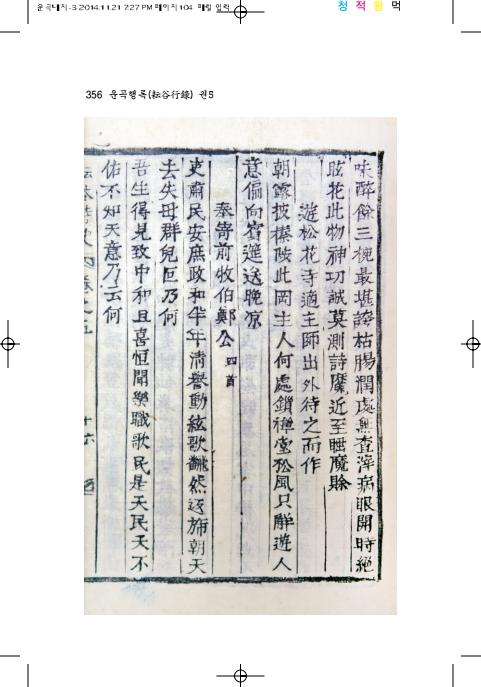 운곡내지-3 2014.11.21 7:27 PM 페이지104
청 적 황 먹
356 운곡행록(耘谷行錄) 권5
味醉餘三椀最堪誇枯腸潤處無査滓病眼開時絕
眩花此物神功誠莫測詩魔近至睡魔賖
遊松花寺適主師出外待之而作
朝露披榛陟此岡主人何處鎖禪堂松風只解遊人
意偏向窓邊送晚凉
奉寄前牧伯鄭公 四首
吏肅民安庶政和半年淸譽動絃歌飜然返旆朝天
去失母群兒叵乃何
吾生得見致中和且喜恒聞樂職歌民是天民天不
佑不知天意乃云何
卷之五 十六